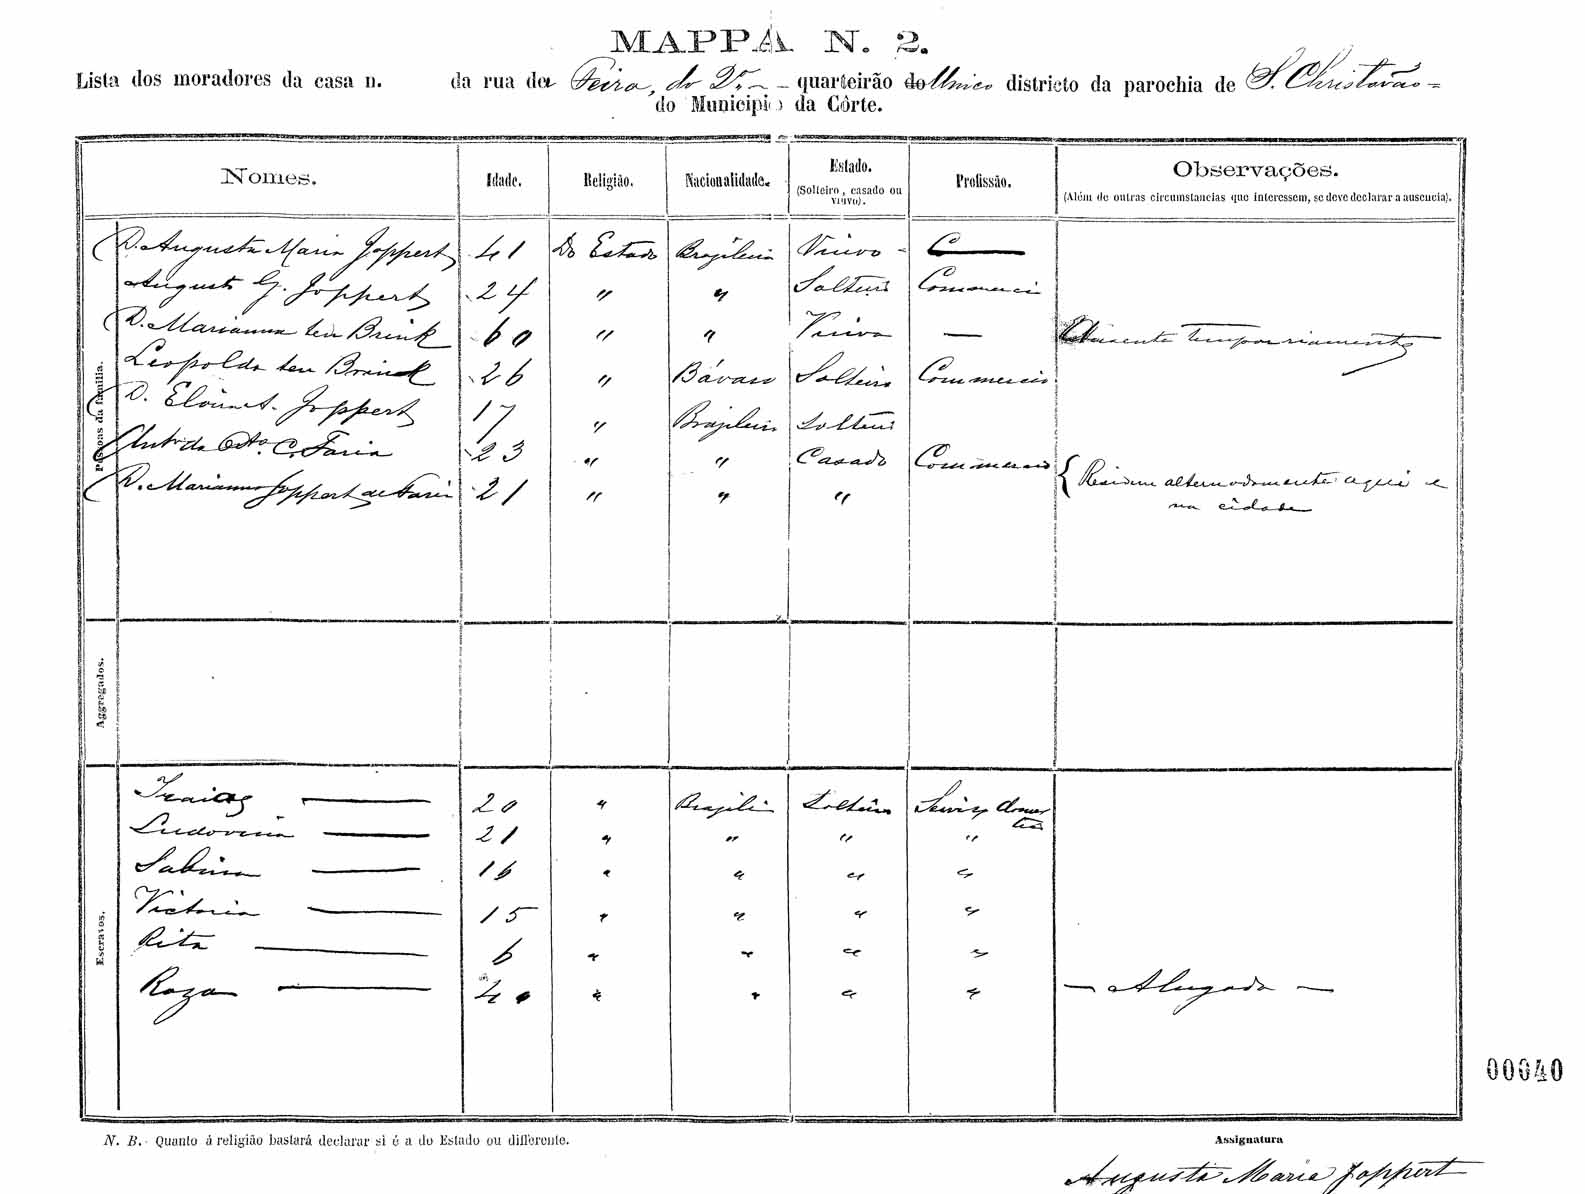 MAPPA N. 2.
Lista dos moradores da casa n. da rua da Feira, do 2º quarteirão do Unico districto da parochia de S. Christovão
do Municipio da Côrte.
Nomes. Idade. Religião. Nacionalidade. Estado. (Solteiro, casado ou viuvo). Profissão. Observações. (Além de outras circumstancias que interessem, se deve declarar a ausencia).
Pessoas da familia.
D. Augusta Maria Joppert 41 Do Estado Brazileira Viuva C
Augusto G. Joppert 24 " " Solteiro Commercio
D. Marianna ten Brink 60 " " Viuva — Ausente temporariamente
Leopoldo ten Brink 26 " Bávaro Solteiro Commercio
D. Joppert 17 " Brazileira Solteira
da C. Faria 23 " " Casado Commercio
D. Marianna Joppert de Faria 21 " " " { Residem alternadamente aqui e
na cidade
Aggregados.
Escravos.
Izaias 20 " Brazileiro Solteiro Serviço domes
tico
Ludovina 21 " " " "
Sabina 16 " " " "
Victoria 15 " " " "
Rita 6 " " " "
Roza 40 " " " " — Alugada —
00040
N. B. Quanto á religião bastará declarar si é a do Estado ou differente.
Assignatura
Augusta Maria Joppert